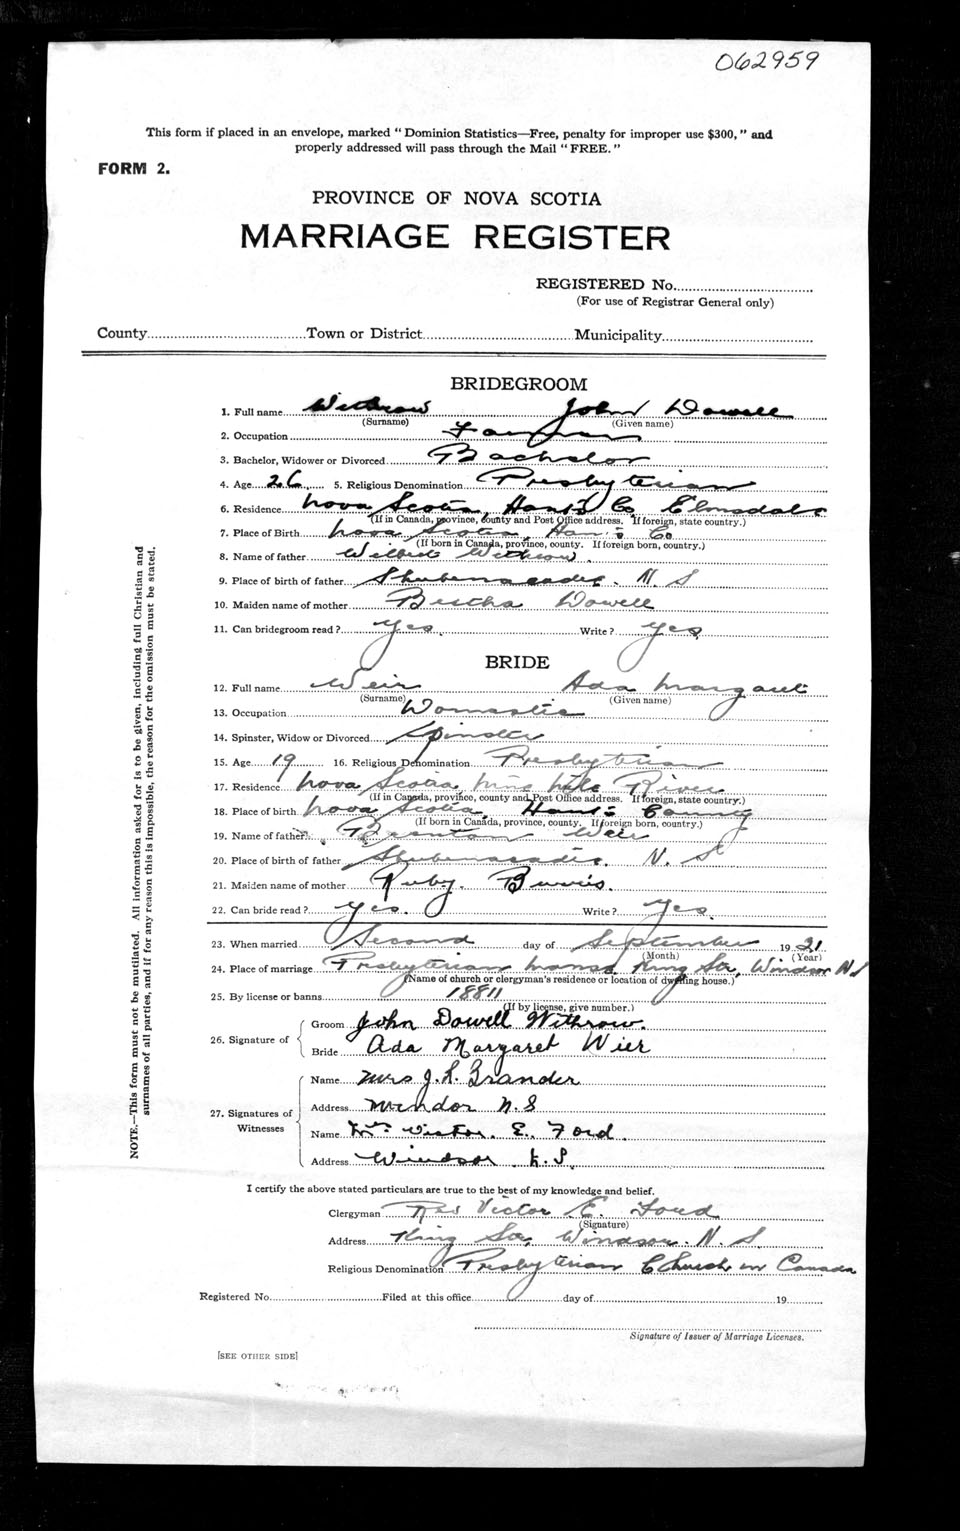 062959
This form if placed in an envelope, marked " Dominion Statistics—Free, penalty for improper use $300, " and
properly addressed will pass through the Mail " FREE. "
FORM 2.
PROVINCE OF NOVA SCOTIA
MARRIAGE REGISTER
REGISTERED No.
(For use of Registrar General only)
County Town or District Municipality
BRIDEGROOM
1. Full name Withrow John Dowell
(Surname) (Given name)
2. Occupation Farmer
3. Bachelor, Widower or Divorced Bachelor
4. Age 26 5. Religious Denomination Presbyterian
6. Residence Nova Scotia, Hants Co Elmsdale
(If in Canada, province, county and Post Office address. If foreign, state country.)
7. Place of Birth Nova Scotia, Hants Co
(If born in Canada, province, county. If foreign born, country.)
8. Name of father Withrow
9. Place of birth of father Shubenacadie. N. S
10. Maiden name of mother Bertha Dowell
11. Can bridegroom read? Yes. Write? Yes
BRIDE
12. Full name Weir Ada Margaret
(Surname) (Given name)
13. Occupation Domestic
14. Spinster, Widow or Divorced Spinster
15. Age 19 16. Religious Denomination Presbyterian
17. Residence Nova Scotia, Nine Mile River
(If in Canada, province, county and Post Office address. If foreign, state country.)
18. Place of birth Nova Scotia, Hants County
(If born in Canada, province, county. If foreign born, country.)
19. Name of father Weir
20. Place of birth of father Shubenacadie. N. S
21. Maiden name of mother Ruby. Burris.
22. Can bride read? Yes. Write? Yes.
23. When married Second day of September 1921
(Month) (Year)
24. Place of marriage Presbyterian Manse King St, Windsor N S
(Name of church or clergyman's residence or location of dwelling house.)
25. By license or banns 18811
(If by license, give number.)
26. Signature of
Groom John Dowell Withrow.
Bride Ada Margaret Wier
27. Signatures of Witnesses
Name Mrs J. L. Brander
Address Windor N. S
Name Mrs Victor. E. Ford.
Address Windsor N. S.
I certify the above stated particulars are true to the best of my knowledge and belief.
Clergyman Rev Victor E. Ford
(Signature)
Address King St, Windsor. N. S.
Religious Denomination Presbyterian Church in Canada
Registered No. Filed at this office day of 19
Signature of Issuer of Marriage Licenses.
[SEE OTHER SIDE]
NOTE.—This form must not be mutilated. All information asked for is to be given, including full Christian and
surnames of all parties, and if for any reason this is impossible, the reason for the omission must be stated.